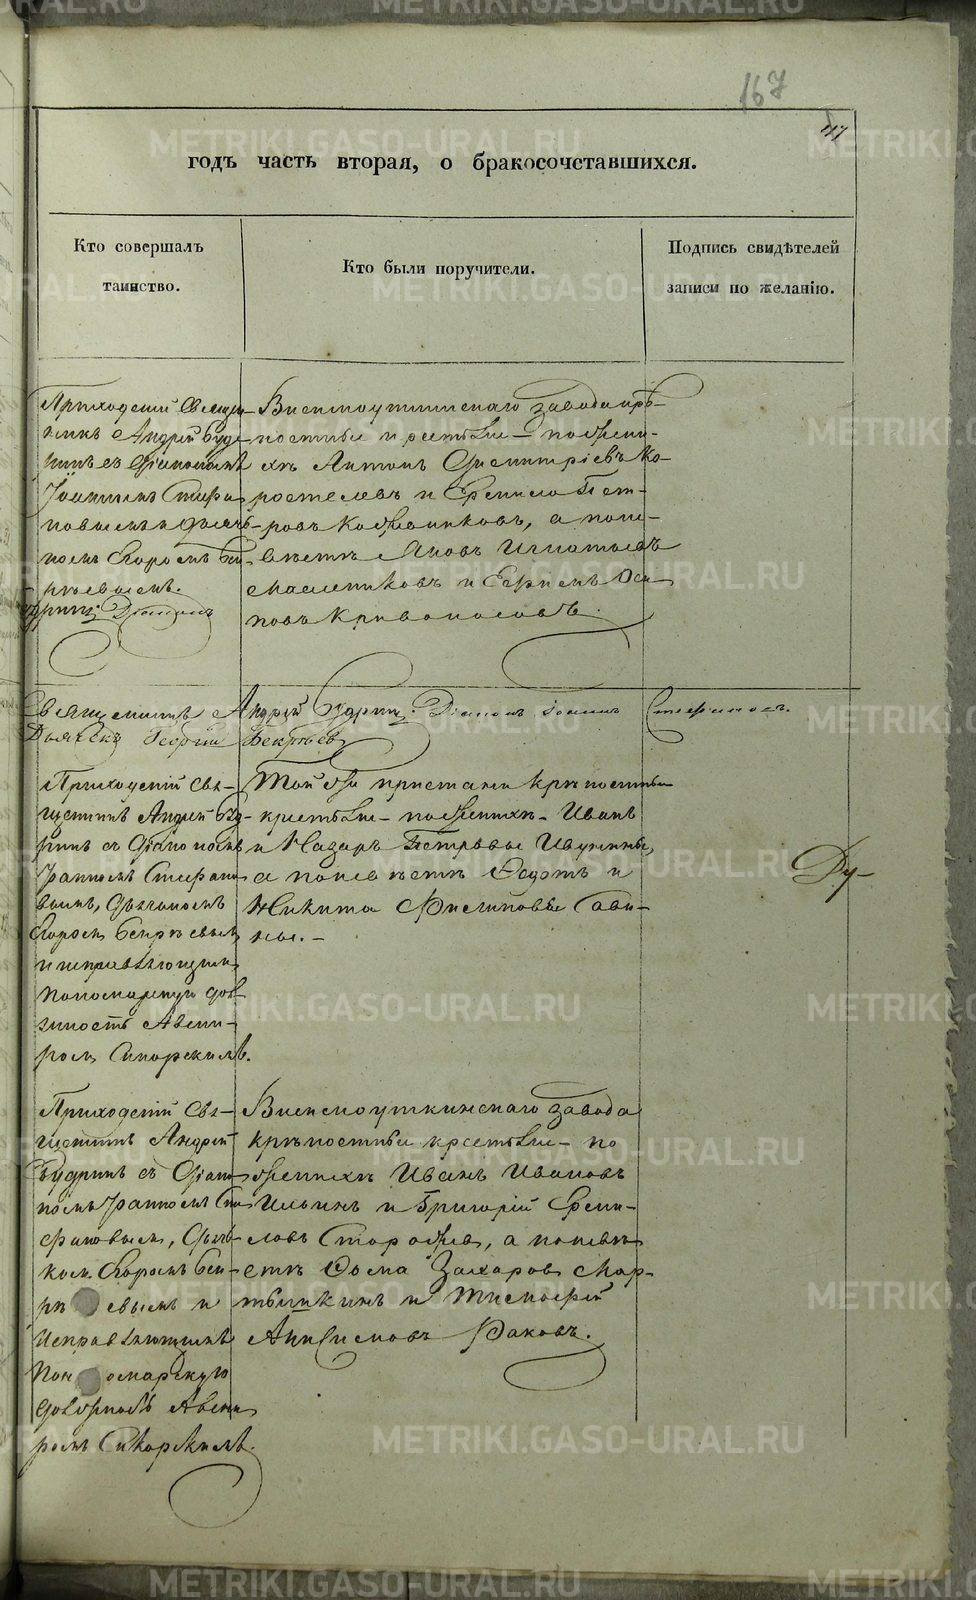 167
117
годъ часть вторая, о бракосочетавшихся.
Кто совершалъ
таинство.
Кто были поручители.
Подпись свидѣтелей
записи по желанію.
Приходскій Священ-
никъ Андрей Буд-
ринъ съ Діакономъ
Іоанномъ Стефа-
новымъ и дьяч-
комъ
Висимоуткинскаго завода крѣ-
постные крестьяне - по жени-
хѣ Антонъ Димитріевъ Ко-
ростелевъ и Ермило Пет-
ровъ Кожевниковъ, а по не-
вѣстѣ Яковъ Игнатьевъ
Масленниковъ и Ефимъ Оси-
повъ Кривоносовъ.
Священникъ Андрей Будринъ. Діаконъ Іоаннъ Стефановъ.
Дьячекъ Георгій
Приходскій Свя-
щенникъ Андрей Бу-
ринъ съ Діакономъ
Іоанномъ Стефано-
вымъ, дьячкомъ
и исправляющимъ
пономарскую дол-
жность Авени-
ромъ Сикорскимъ.
Той же пристани крѣпостные
крестьяне - по женихѣ - Иванъ
и Назаръ Петровы
а по невѣстѣ Федотъ и
Никита Филиповы Сави-
ны. -
Ду-
Приходскій Свя-
щенникъ Андрей
Будринъ съ Діако-
номъ Іоанномъ Сте-
фановымъ, дьяч-
комъ
и
исправляющимъ
Пономарскую
должность Авени-
ромъ Сикорскимъ.
Висимоуткинскаго завода
крѣпостные крестьяне - по
женихѣ Иванъ Ивановъ
Ильинъ и Григорій Ерми-
ловъ а по невѣ-
стѣ Фома Захаровъ Мар-
тьяшкинъ и Тимофей
Анисимовъ Раковъ.
METRIKI.GASO-URAL.RU